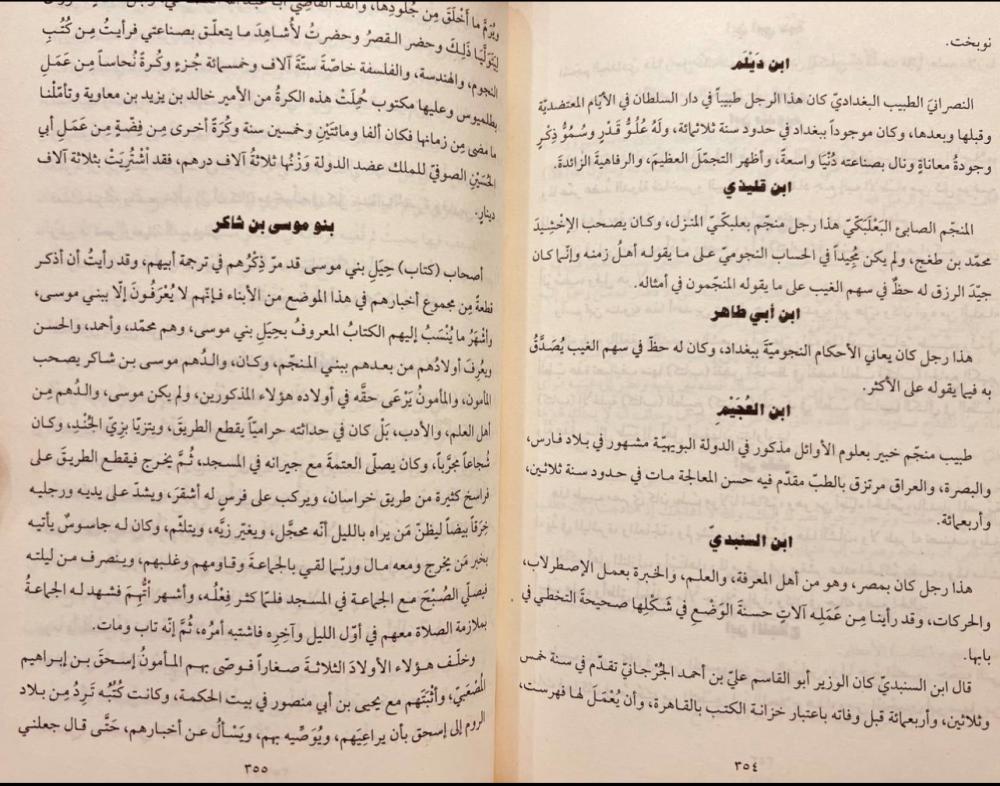 نوبخت.
ابن دَيْلم
النصرانيّ الطبيب البغداديّ كان هذا الرجل طبيباً في دار السلطان في الأيّام المعتضديّة
وقبلها وبعدها، وكان موجوداً ببغداد في حدود سنة ثلاثمائة، ولَهُ عُلُوُّ قَدْرٍ وسُمُوُّ ذِكْرٍ
وجودةُ معاناةٍ ونال بصناعته دُنْيَا واسعةً، وأظهر التجمّلَ العظيمَ، والرفاهيةَ الزائدة.
ابن قليذي
المنجّم الصابئ البَعْلَبَكّيّ هذا رجل منجّم بعلبكّيّ المنزل، وكان يصحب الإخْشِيدَ
محمّد بن طغج، ولم يكن مُجِيداً في الحساب النجوميّ على ما يقوله أهل زمنه وإنّما كان
جيّدَ الرزق له حظٌّ في سهم الغيب على ما يقوله المنجّمون في أمثاله.
ابن أبي طاهر
هذا رجل كان يعاني الأحكام النجوميّة ببغداد، وكان له حظّ في سهم الغيب يُصَدَّقُ
به فيما يقوله على الأكثر.
ابن العُجَيْمِ
طبيب منجّم خبير بعلوم الأوائل مذكور في الدولة البويهيّة مشهور في بلاد فارس،
والبصرة، والعراق مرتزق بالطبّ مقدَّم فيه حسن المعالجة مات في حدود سنة ثلاثين،
وأربعمائة.
ابن السنبدي
هذا رجل كان بمصر، وهو من أهل المعرفة، والعلم، والخبرة بعمل الإصطرلاب،
والحركات، وقد رأينا مِن عَمَلِهِ آلاتٍ حسنةَ الوَضْعِ في شَكْلِها صحيحةَ التخطي في
بابها.
قال ابن السنبديّ كان الوزير أبو القاسم عليّ بن أحمد الجُرْجانيّ تقدّم في سنة خمس
وثلاثين، وأربعمائة قبل وفاته باعتبار خزانة الكتب بالقاهرة، وأن يُعْمَلَ لها فهرست،
٣٥٤
ويُرَمَّ ما أَخْلَقَ مِن جُلُودِها، وأنفذ القاضي أبا عبد الله
لِيَتَوَلَّيَا ذَلِكَ وحضر القصرُ وحضرتُ لأُشاهِدَ ما يتعلّق بصناعتي فرأيتُ مِن كُتُبِ
النجوم، والهندسة، والفلسفة خاصّةً ستّةَ آلاف وخمسمائة جُزءٍ وكُرةً نُحاساً مِن عَمَلِ
بطلميوس وعليها مكتوب حُمِلَتْ هذه الكرةُ من الأمير خالد بن يزيد بن معاوية وتأمّلْنا
ما مضى مِن زمانها فكان ألفا ومائتَيْن وخمسين سنة وكُرَةً أخرى مِن فِضّةٍ مِن عَمَلِ أبي
الحُسَيْنِ الصوفيّ للملك عضد الدولة وَزْنُها ثلاثةُ آلاف درهم، فقد اشْتُرِيَتْ بثلاثة آلاف
دينار.
بنو موسى بن شاكر
أصحاب (كتاب) حِيَلِ بني موسى قد مرّ ذِكْرُهم في ترجمة أبيهم، وقد رأيتُ أن أذكر
قطعةً مِن مجموع أخبارهم في هذا الموضع من الأبناء فإنّهم لا يُعْرَفُونَ إلّا ببني موسى،
وأشْهَرُ ما يُنْسَبُ إليهم الكتابُ المعروفُ بحِيَلِ بني موسى، وهم محمّد، وأحمد، والحسن
ويُعْرِفَ أولادُهم من بعدهم ببني المنجّم، وكان، والدُهم موسى بن شاكر يصحب
المأمون، والمأمونُ يَرْعَى حقَّه في أولاده هؤلاء المذكورين، ولم يكن موسى، والدُهم مِن
أهل العلم، والأدب، بَلْ كان في حداثته حراميّاً يقطع الطريقَ، ويتزيّا بزِيِّ الجُنْدِ، وكان
شُجاعاً مجرَّباً، وكان يصلّى العتمةَ مع جيرانه في المسجد، ثُمَّ يخرج فيقطع الطريقَ على
فراسخ كثيرة من طريق خراسان، ويركب على فرسٍ له أشقرَ، ويشدّ على يديه ورجليه
خِرَقاً بيضاً ليظنّ مَن يراه بالليل أنّه محجَّل، ويغيّر زيَّه، ويتلثّم، وكان له جاسوسٌ يأتيه
بخبر مَن يخرج ومعه مال وربّما لقي بالجماعة وقاومهم وغلبهم، وينصرف من ليلته
فيصلّي الصُبْحَ مع الجماعة في المسجد فلمّا كثر فِعْلُه، وأشهر أتُّهِمَ فشهد له الجماعةُ
بملازمة الصلاة معهم في أوّل الليل وآخره فاشتبه أمرُه، ثُمَّ إنّه تاب ومات.
وخلّف هؤلاء الأولادَ الثلاثةَ صغاراً فوصّى بهم المأمونُ إسحقَ بن إبراهيم
المُصْعَبيّ، وأثْبَتَهم مع يحيى بن أبي منصور في بيت الحكمة، وكانت كُتُبُه تَرِدُ مِن بلاد
الروم إلى إسحق بأن يراعِيَهم، ويُوَصِّيه بهم، ويَسْأل عن أخبارهم، حَتَّى قال جعلني
٣٥٥